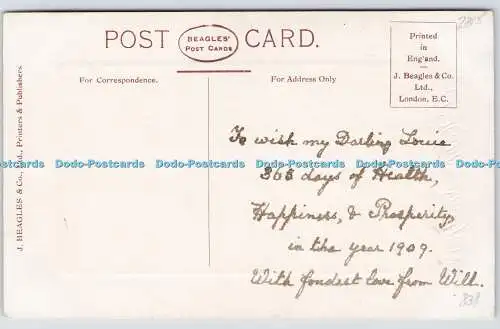 2308
POST CARD.
BEAGLES'
POST CARDS
Printed
in
England.
J. Beagles & Co.
Ltd.,
London, E.C.
For Correspondence.
For Address Only
J. BEAGLES & Co., Ltd., Printers & Publishers.
To wish my Darling Louie
Dodo-Postcards Dodo-Postcards Dodo-Postcards Dodo-Postcards Dodo-Postcards
365 days of Health,
Happiness, & Prosperity,
in the year 1909.
With fondest love from Will.
838